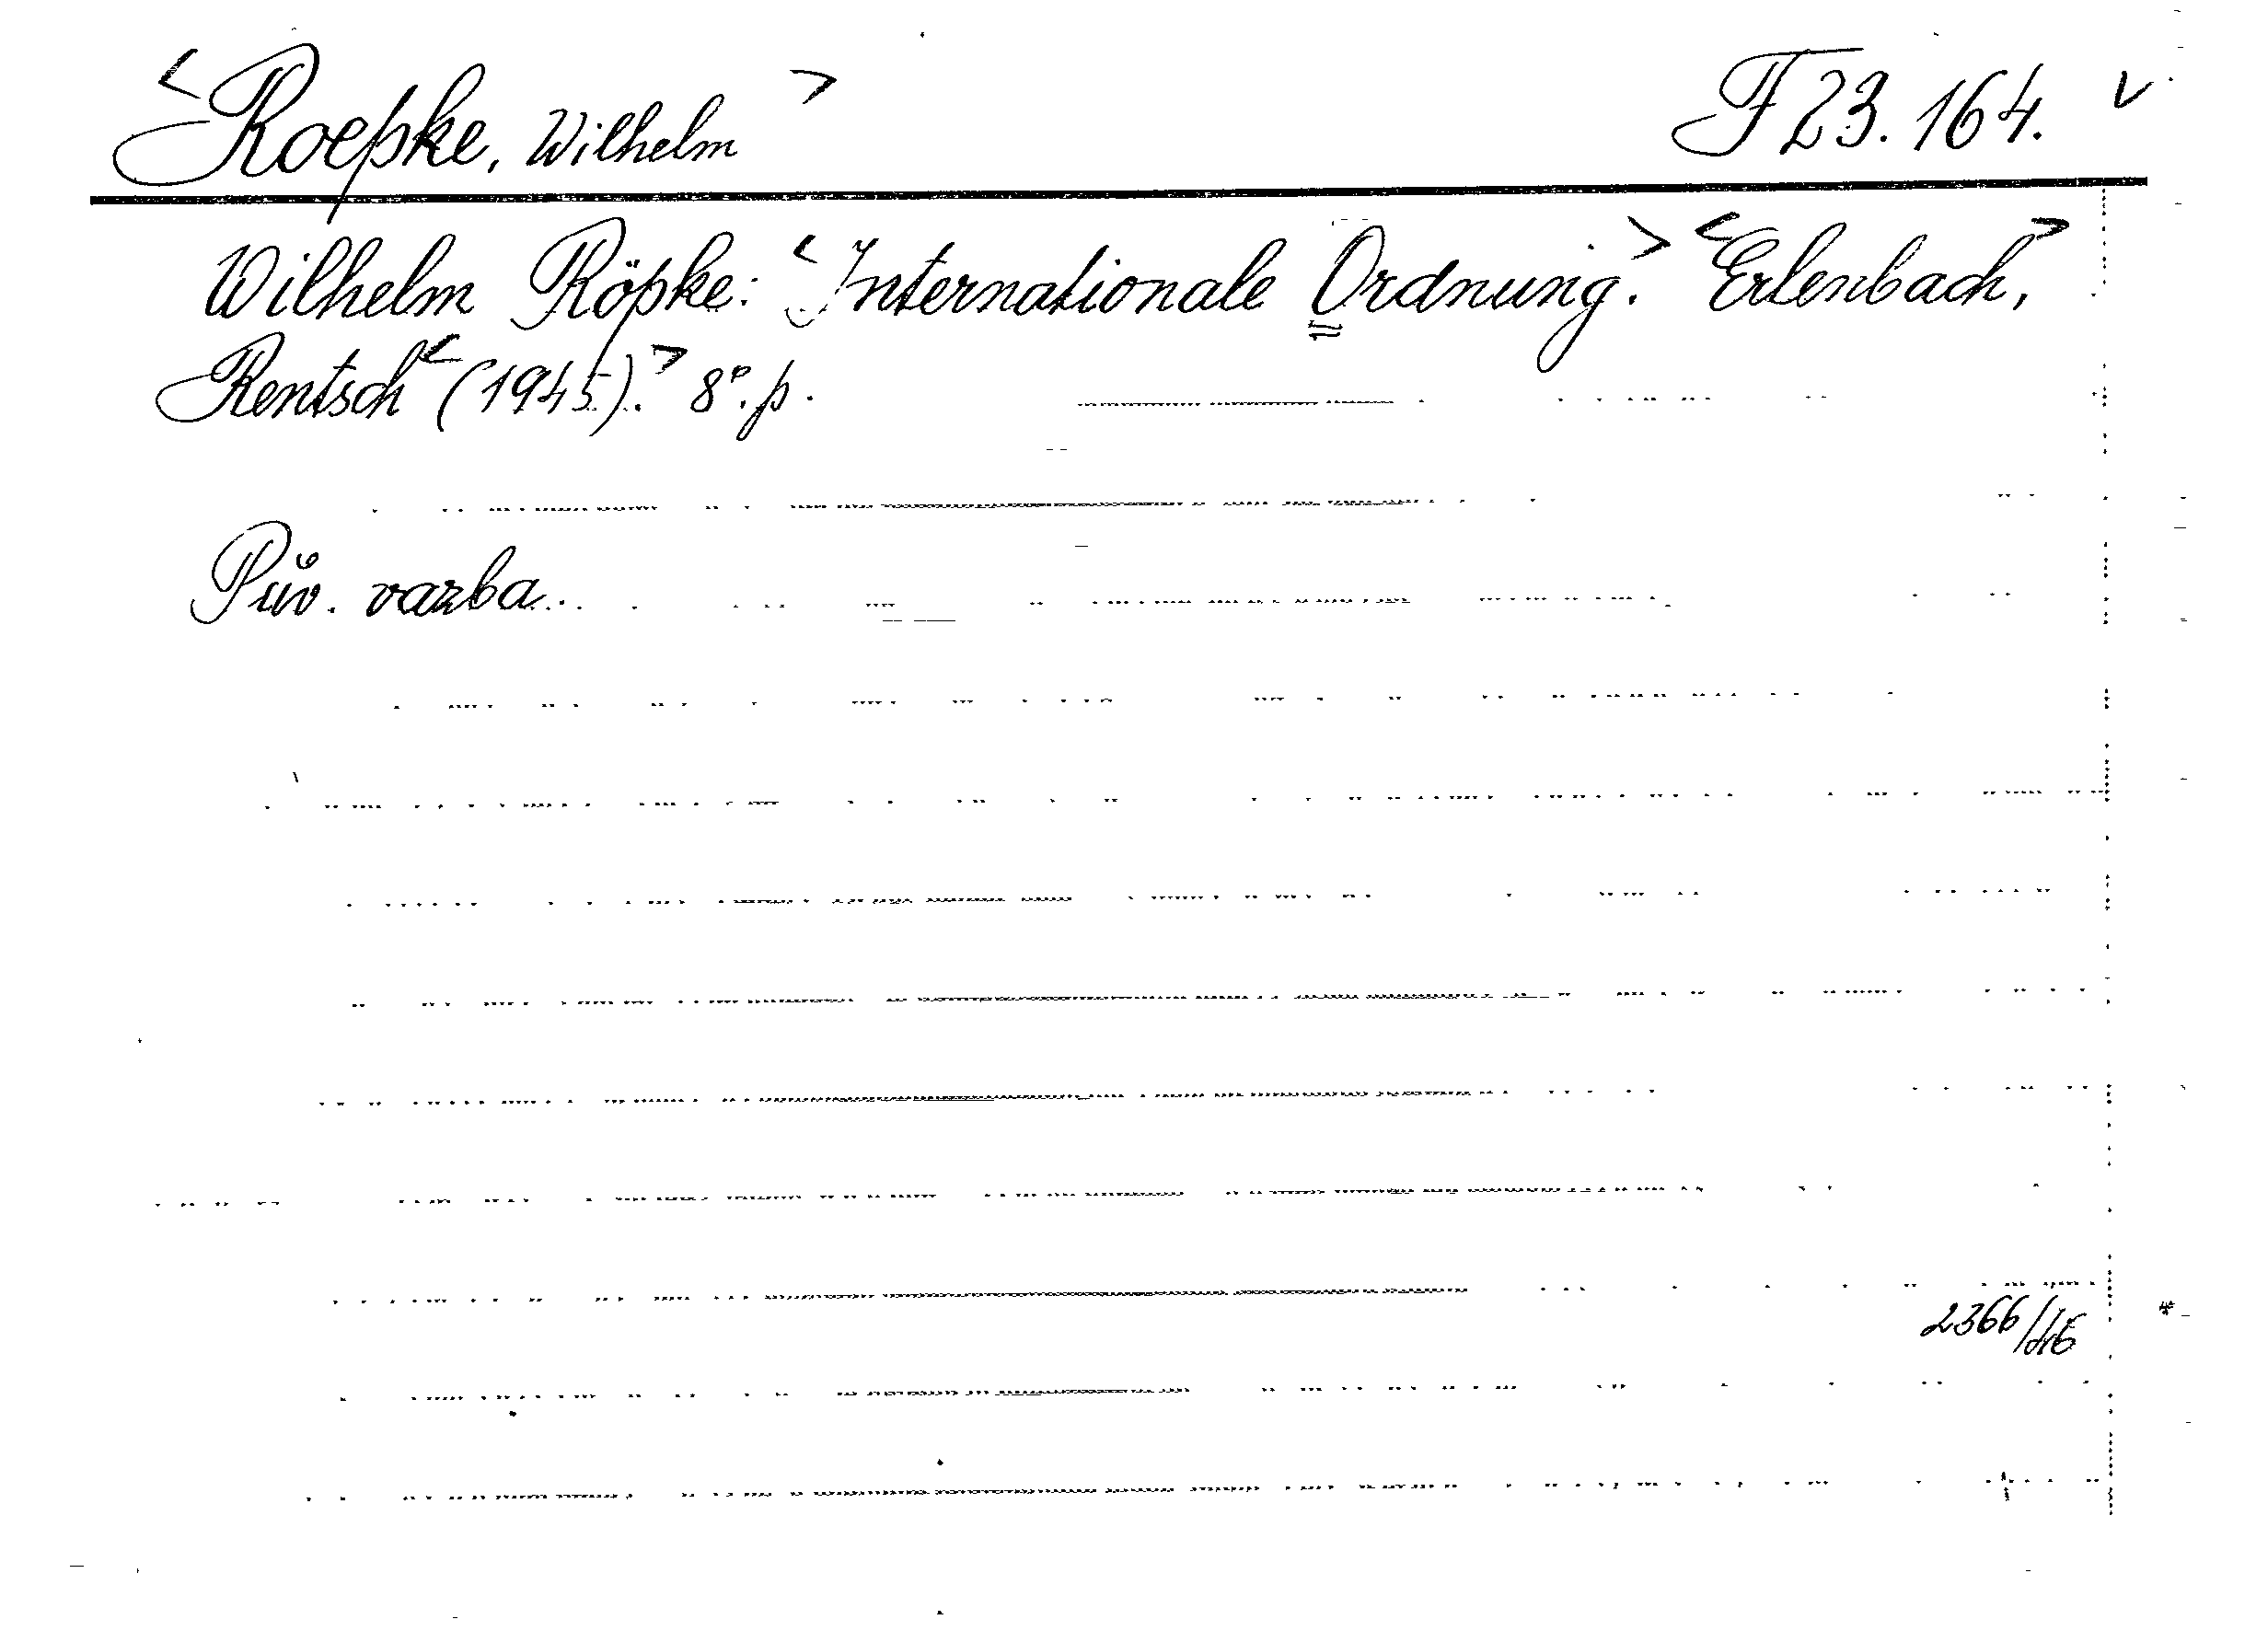 <Roepke, Wilhelm> F 23.164. v
Wilhelm Röpke: <Internationale Ordnung.> <Erlenbach,>
Rentsch <(1945).> 8°. p.
Pův. vazba.
2366/46